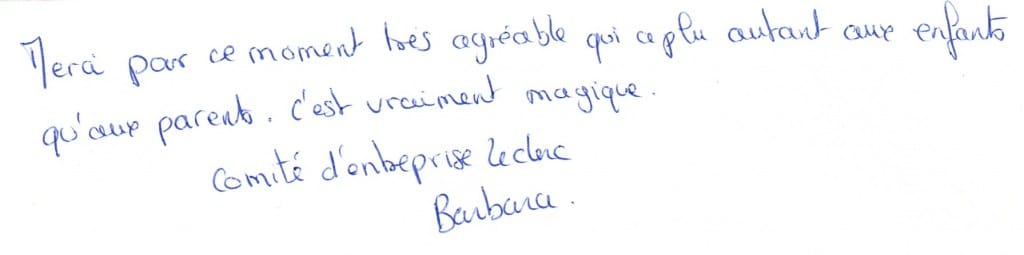 Merci pour ce moment très agréable qui a plu autant aux enfants
qu'aux parents. C'est vraiment magique.
Comité d'entreprise Leclerc
Barbara.